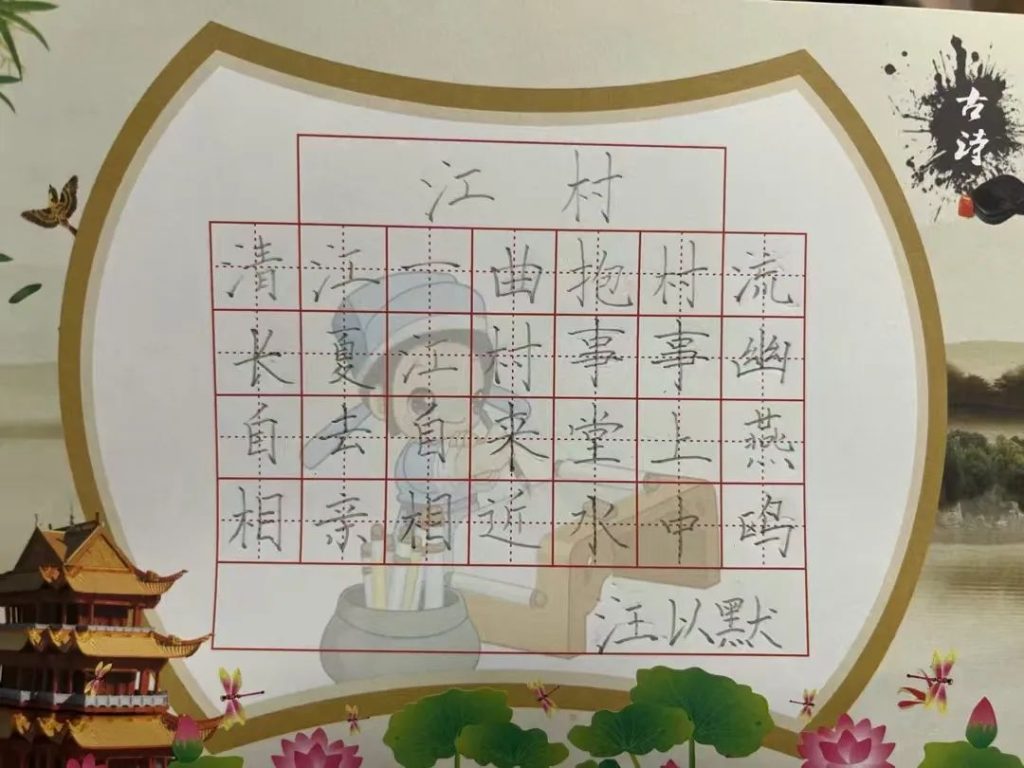 古诗
江村
清江一曲抱村流
长夏江村事事幽
自去自来堂上燕
相亲相近水中鸥
汪以默